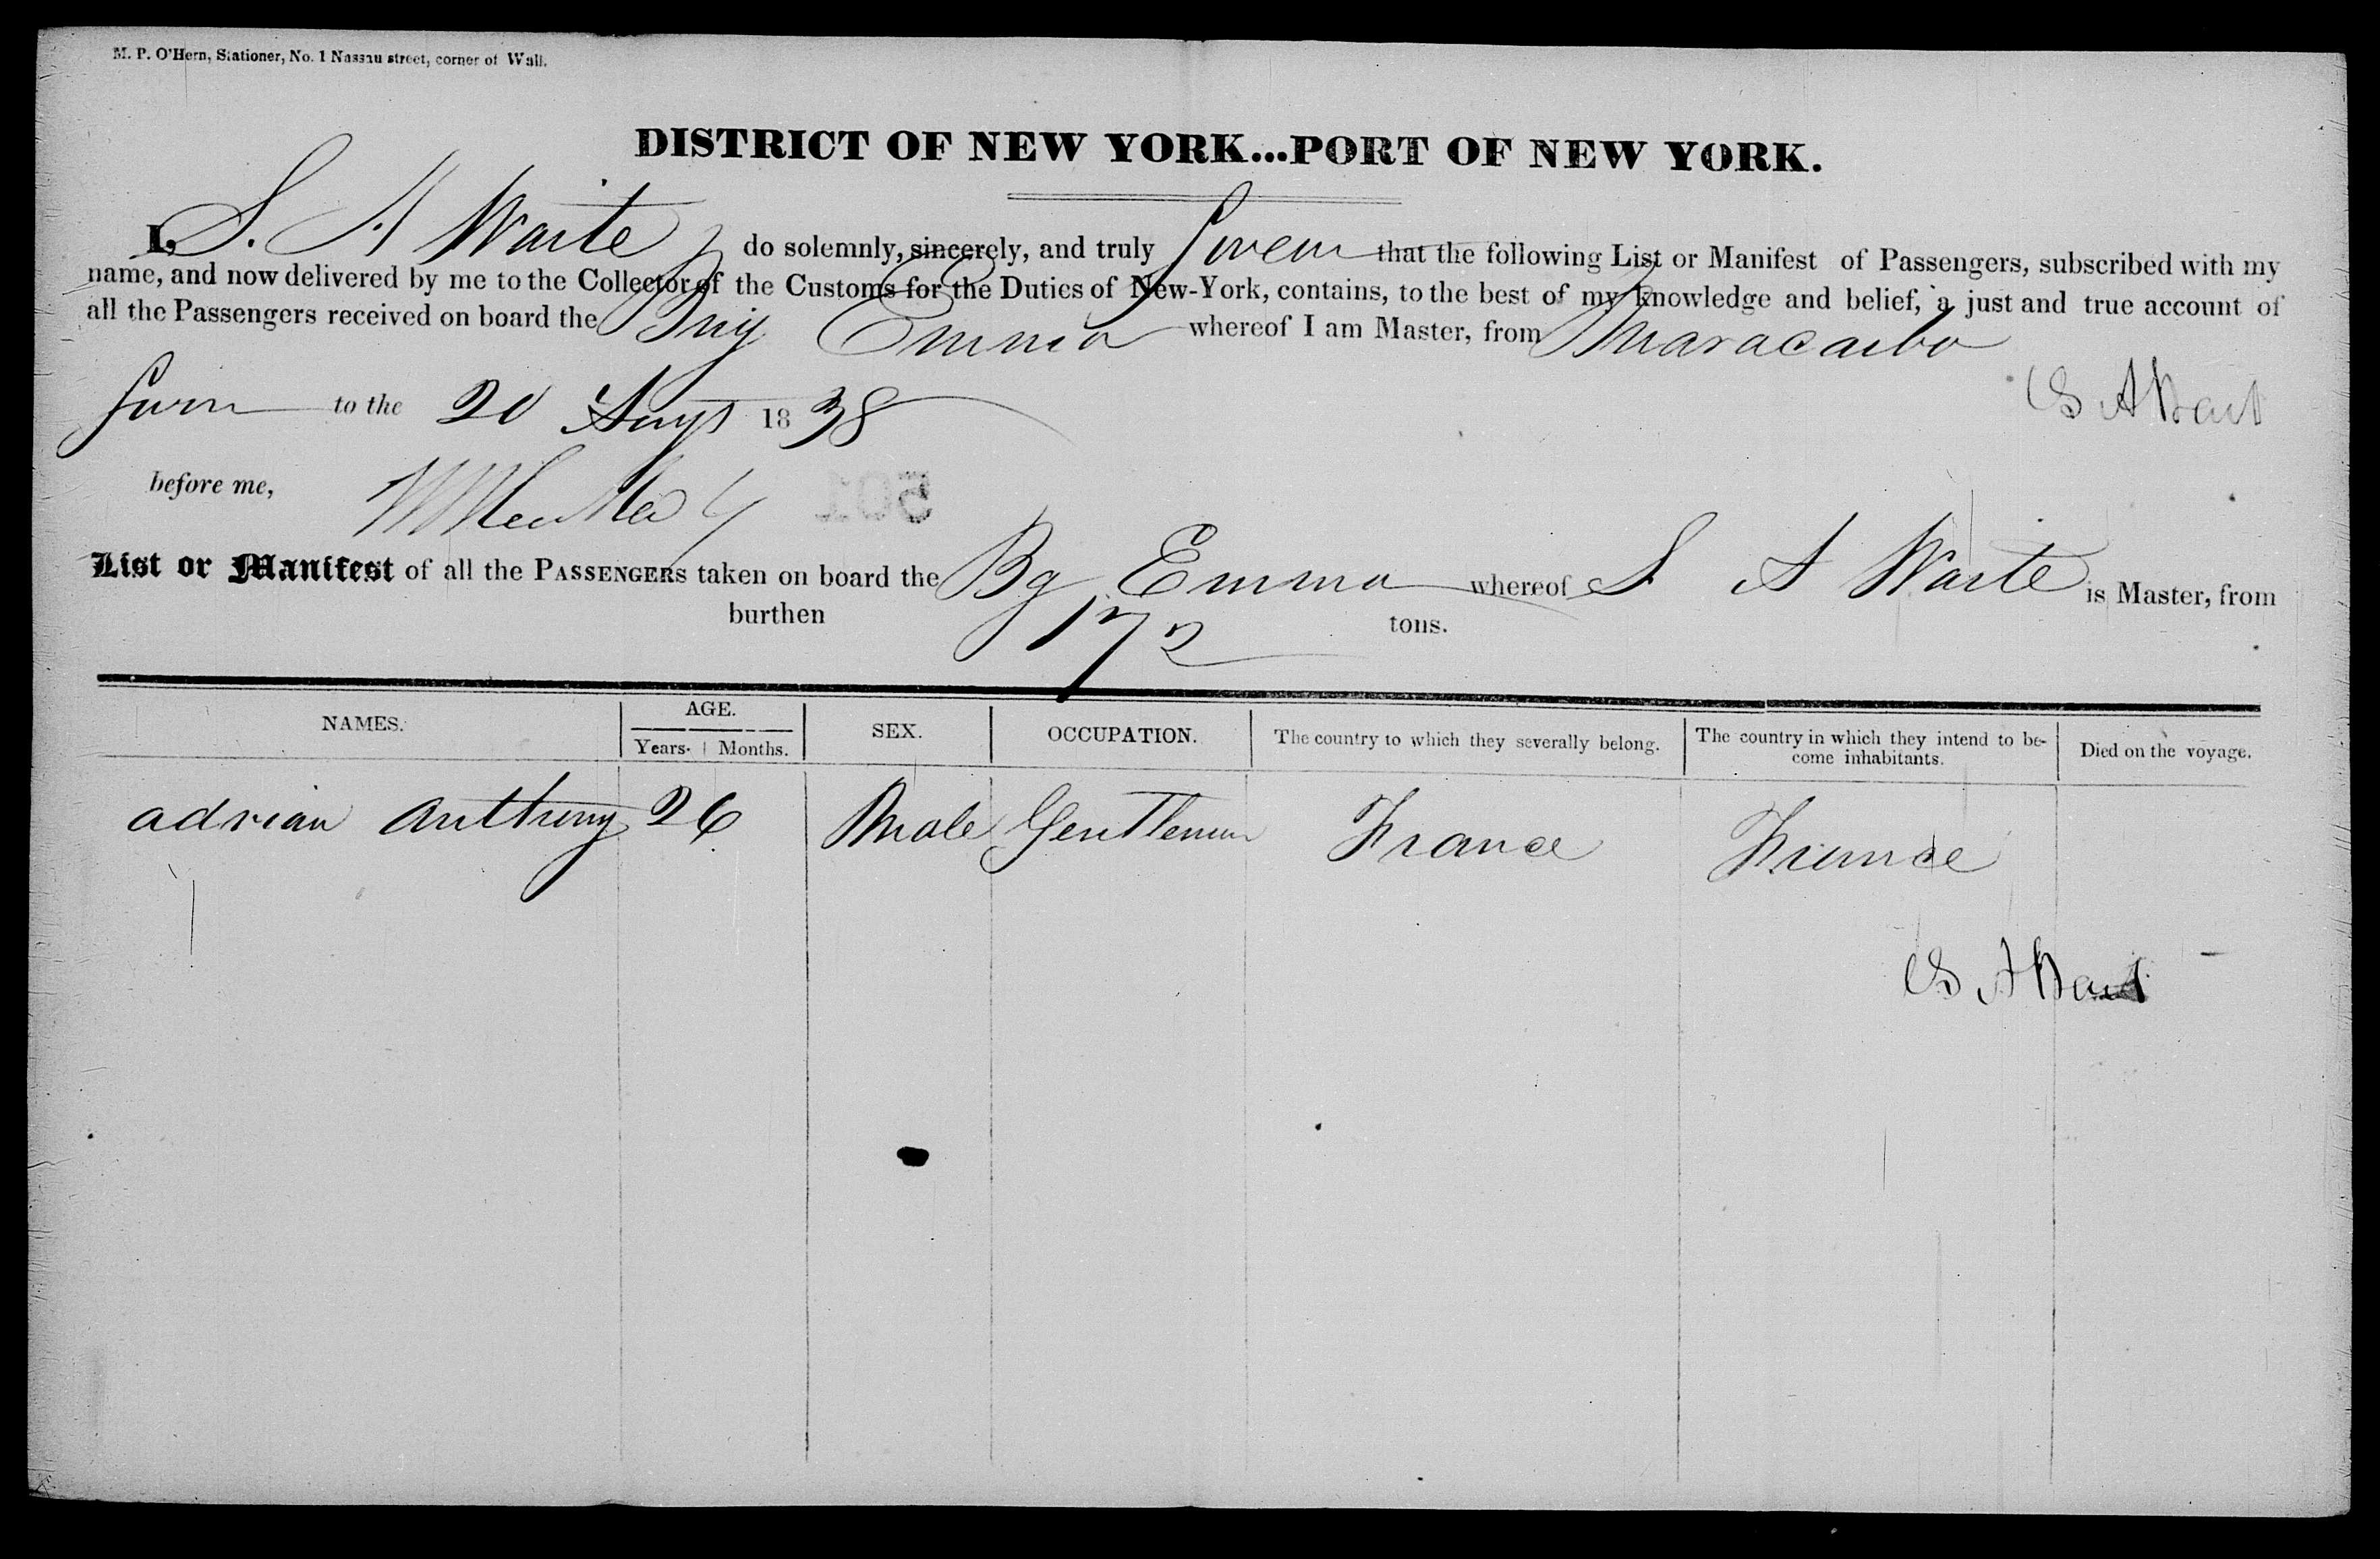 M. P. O'Hern, Stationer, No. 1 Nassau street, corner of Wall.
DISTRICT OF NEW YORK...PORT OF NEW YORK.
I, S. A Waite do solemnly, sincerely, and truly Swear that the following List or Manifest of Passengers, subscribed with my
name, and now delivered by me to the Collector of the Customs for the Duties of New-York, contains, to the best of my knowledge and belief, a just and true account of
all the Passengers received on board the Brig Emma whereof I am Master, from Maracaibo
Sworn to the 20 Augt 1838
S A Wait
before me,
501
List or Manifest of all the PASSENGERS taken on board the Bg Emma whereof S A Waite is Master, from
burthen 172 tons.
NAMES. AGE. Years. Months. SEX. OCCUPATION. The country to which they severally belong. The country in which they intend to be-
come inhabitants. Died on the voyage.
adrian anthony 26 Male Gentleman France France
S A Wait